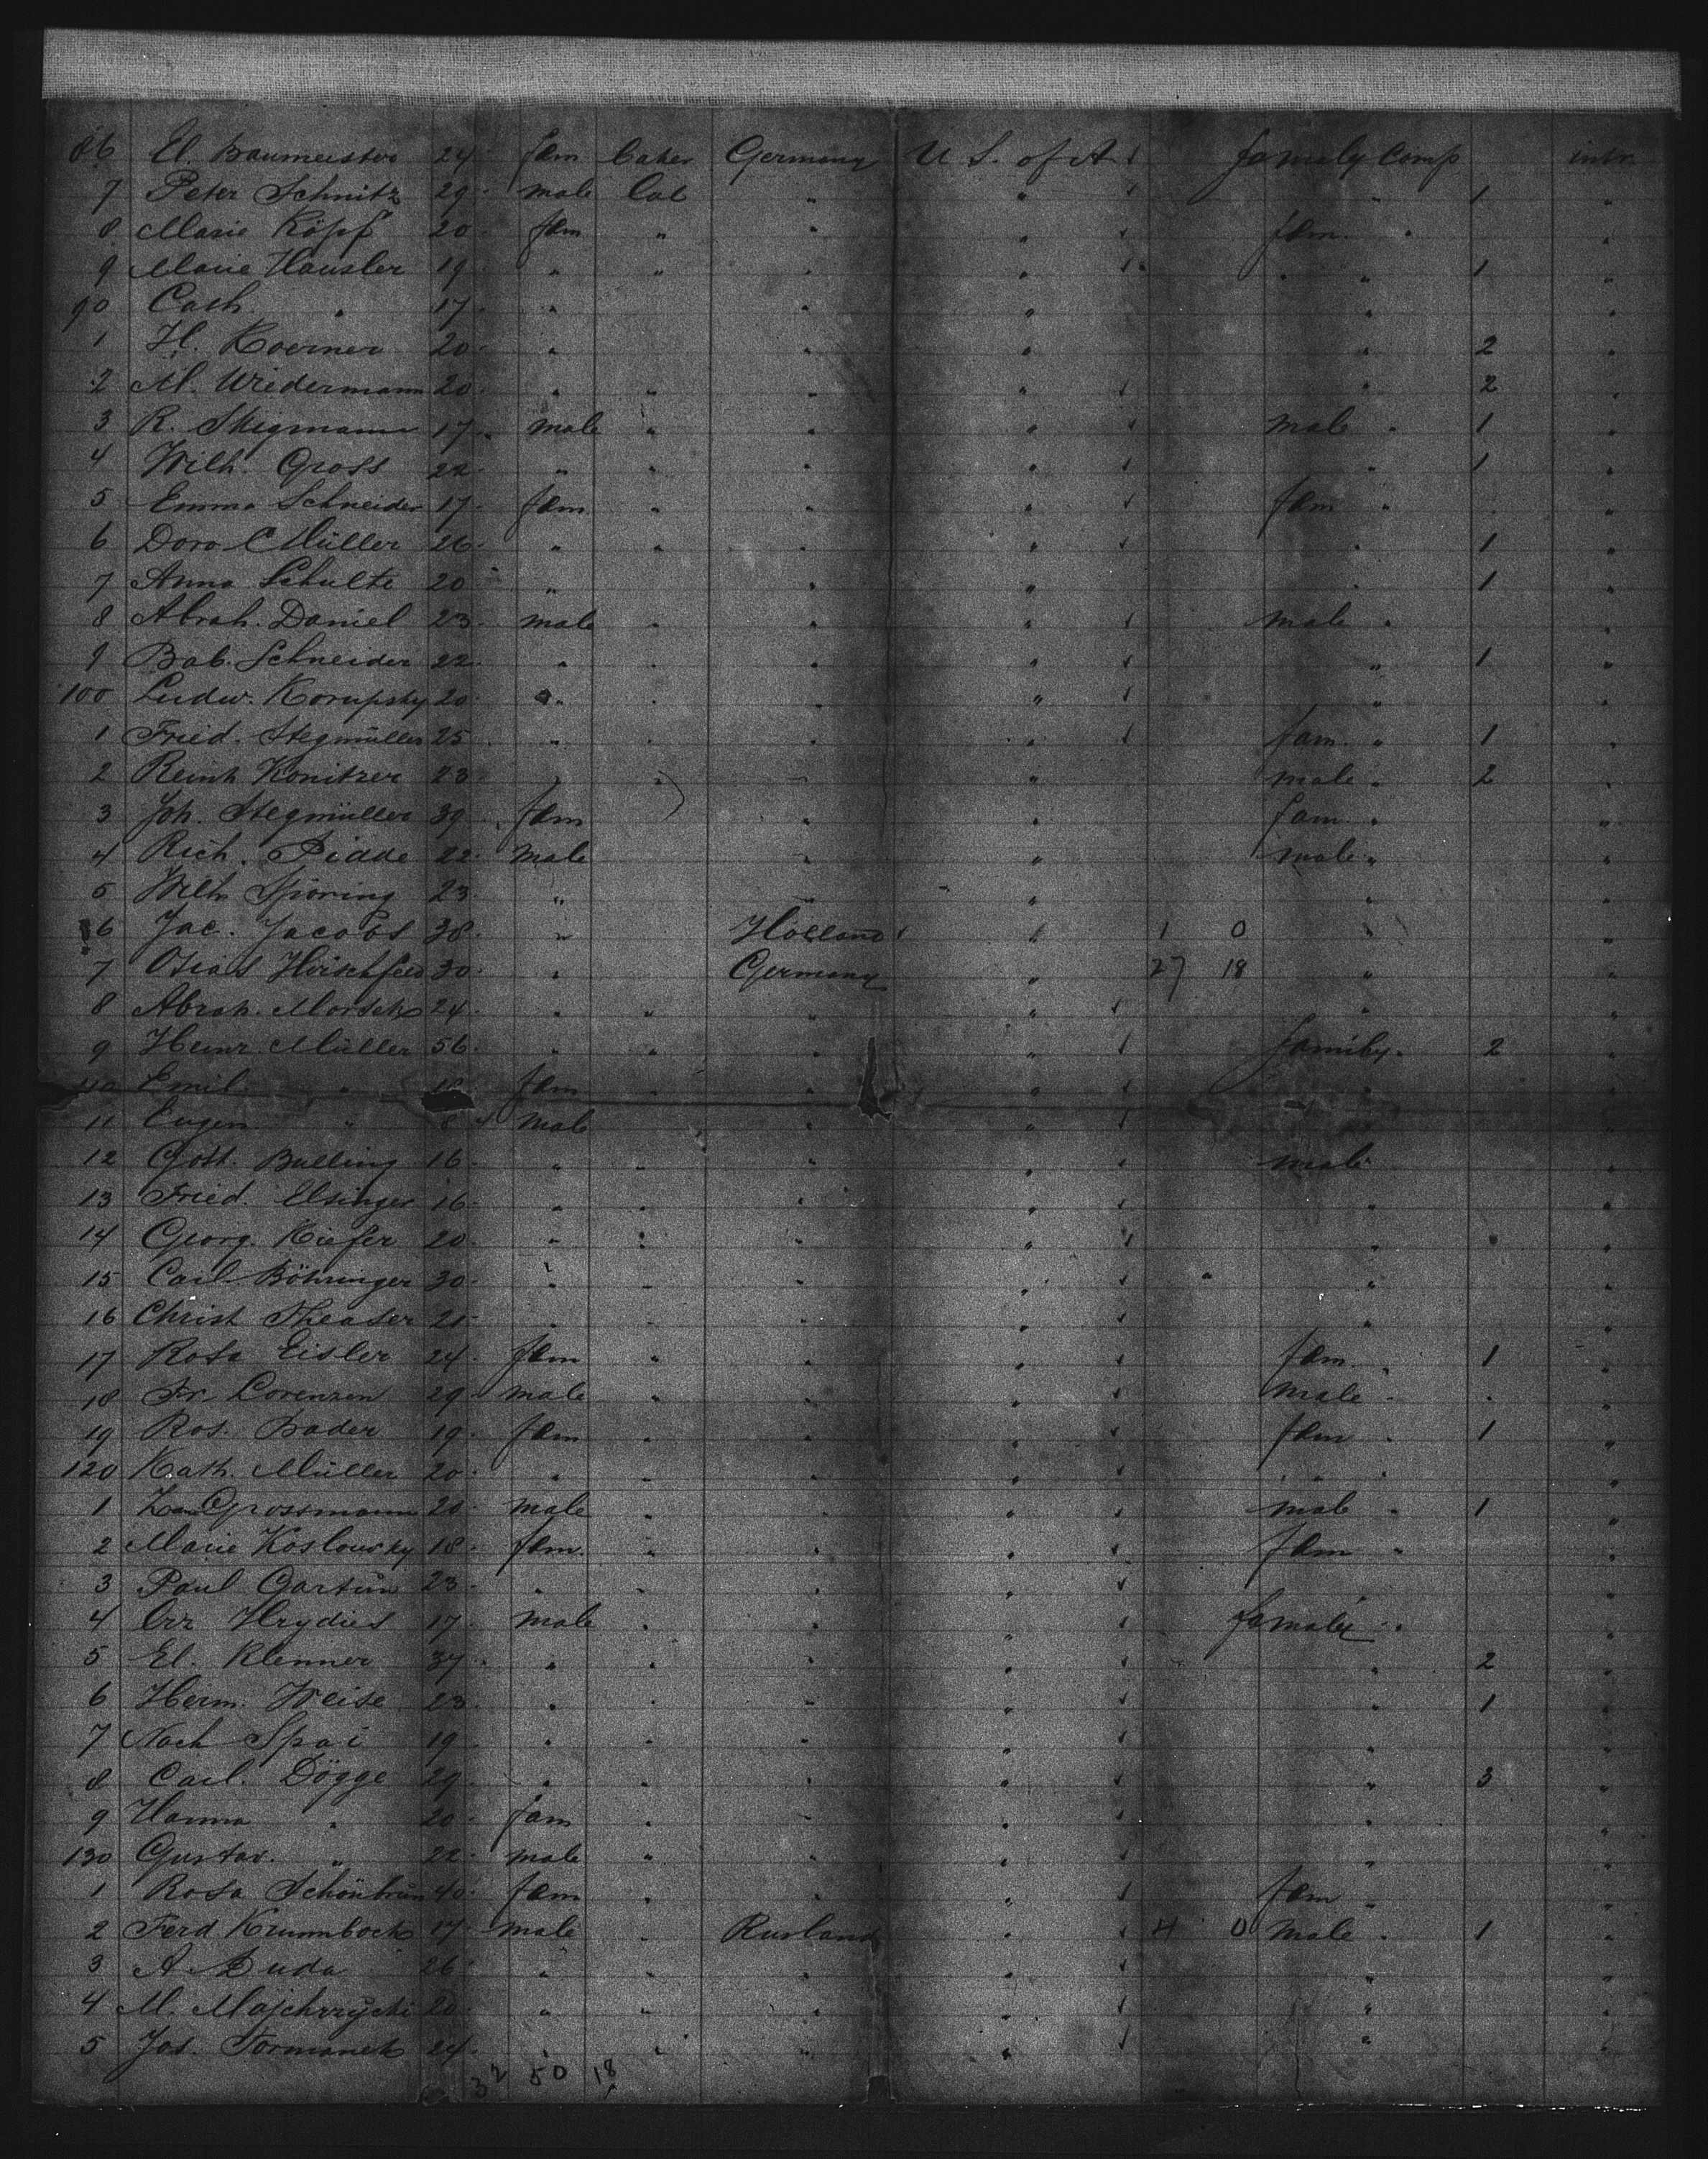 86 El. Baumeister 24 fem Caker Germany U S. of A family Comp intr.
7 Peter Schmitz 29 male Cal " " " 1 "
8 Marie Köpf 20 fem " " " fem. " "
9 Marie Hausler 19 " " " " " 1 "
90 Cath. " 17 " " " " "
1 H. Koerner 20 " " " " 2 "
2 M. Wiedermann 20 " " " " " 2 "
3 R. Stegmann 17 male " " " male " 1 "
4 Wilh. Gross 22 " " " " " 1 "
5 Emma Schneider 17 fem " " " fem " "
6 Doro C Müller 26 " " " " " 1 "
7 Anna Schulte 20 " " " " 1 "
8 Abrah. Daniel 23 male " " " male " "
9 Bab. Schneider 22 " " " " " 1 "
100 Ludw. Korupsky 20 " " " " " "
1 Fried. Stegmüller 25 " " " " fam. " 1 "
2 Reinh Konitzer 23 " " " " male " 2 "
3 Joh. Stegmüller 39 fem " " fam. " "
4 Rich. Piade 22 male " " male " "
5 Wilh Sporing 23 " " " " "
6 Jac. Jacobs 38 " Holland " 1 0 " "
7 Osias Hirschfeld 30 " Germany " 27 18 " "
8 Abrah. Morsch 24 " " " " " "
9 Heinr. Müller 56 " " " " family " 2 "
110 Emil " 18 fem " " " " "
11 Eugen " 8 male " " "
12 Gott. Bulling 16 " " " " male "
13 Fried. Elsinger 16 " " " " " "
14 Georg. Kiefer 20 " " " " " "
15 Carl Böhringer 30 " " " " " "
16 Christ Theaser 21 " " " " " "
17 Rosa Eisler 24 fem " " " fem. " 1 "
18 Fr. Lorenzen 29 male " " " male " "
19 Ros. Bader 19 fem " " " fem " 1 "
120 Kath. Müller 20 " " " " " "
1 Grossmann 20 male " " " male " 1 "
2 Marie Koslowsky 18 fem. " " " fem " "
3 Paul Gartün 23 " " " " "
4 Hrydies 17 male " " famaly " "
5 El. Klenner 37 " " " " " 2 "
6 Herm. Weise 23 " " " " " 1 "
7 Nach Spai 19 " " " " " "
8 Carl. Dögge 29 " " " " " 3 "
9 Hanna " 20 fam " " " " "
130 Gustav. " 22 male " " " " "
1 Rosa Schönbrun 40 fem " " " fem " "
2 Ferd Krummbock 17 male " Rusland " 4 0 male " 1 "
3 A Duda 26 " " " " " "
4 M. Majchrzycki 20 " " " " " "
5 Jos. Formanek 24 " " " " " "
32 50 18